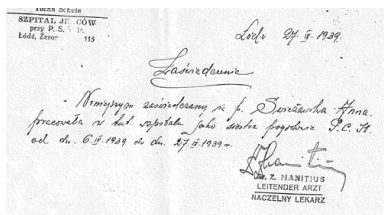 SZPITAL JEŃCÓW
przy P. S.
Łódź, Żerom 115
Łódź 27.IX.1939.
Zaświadczenie
Niniejszym zaświadczamy że p. Świeżawska Anna
pracowała w tut. szpitalu jako siostra pogotowia P.C.K.
od dn. 6.IX.1939 do dn. 27.IX.1939 r.
Dr. Z. MANITIUS
LEITENDER ARZT
NACZELNY LEKARZ